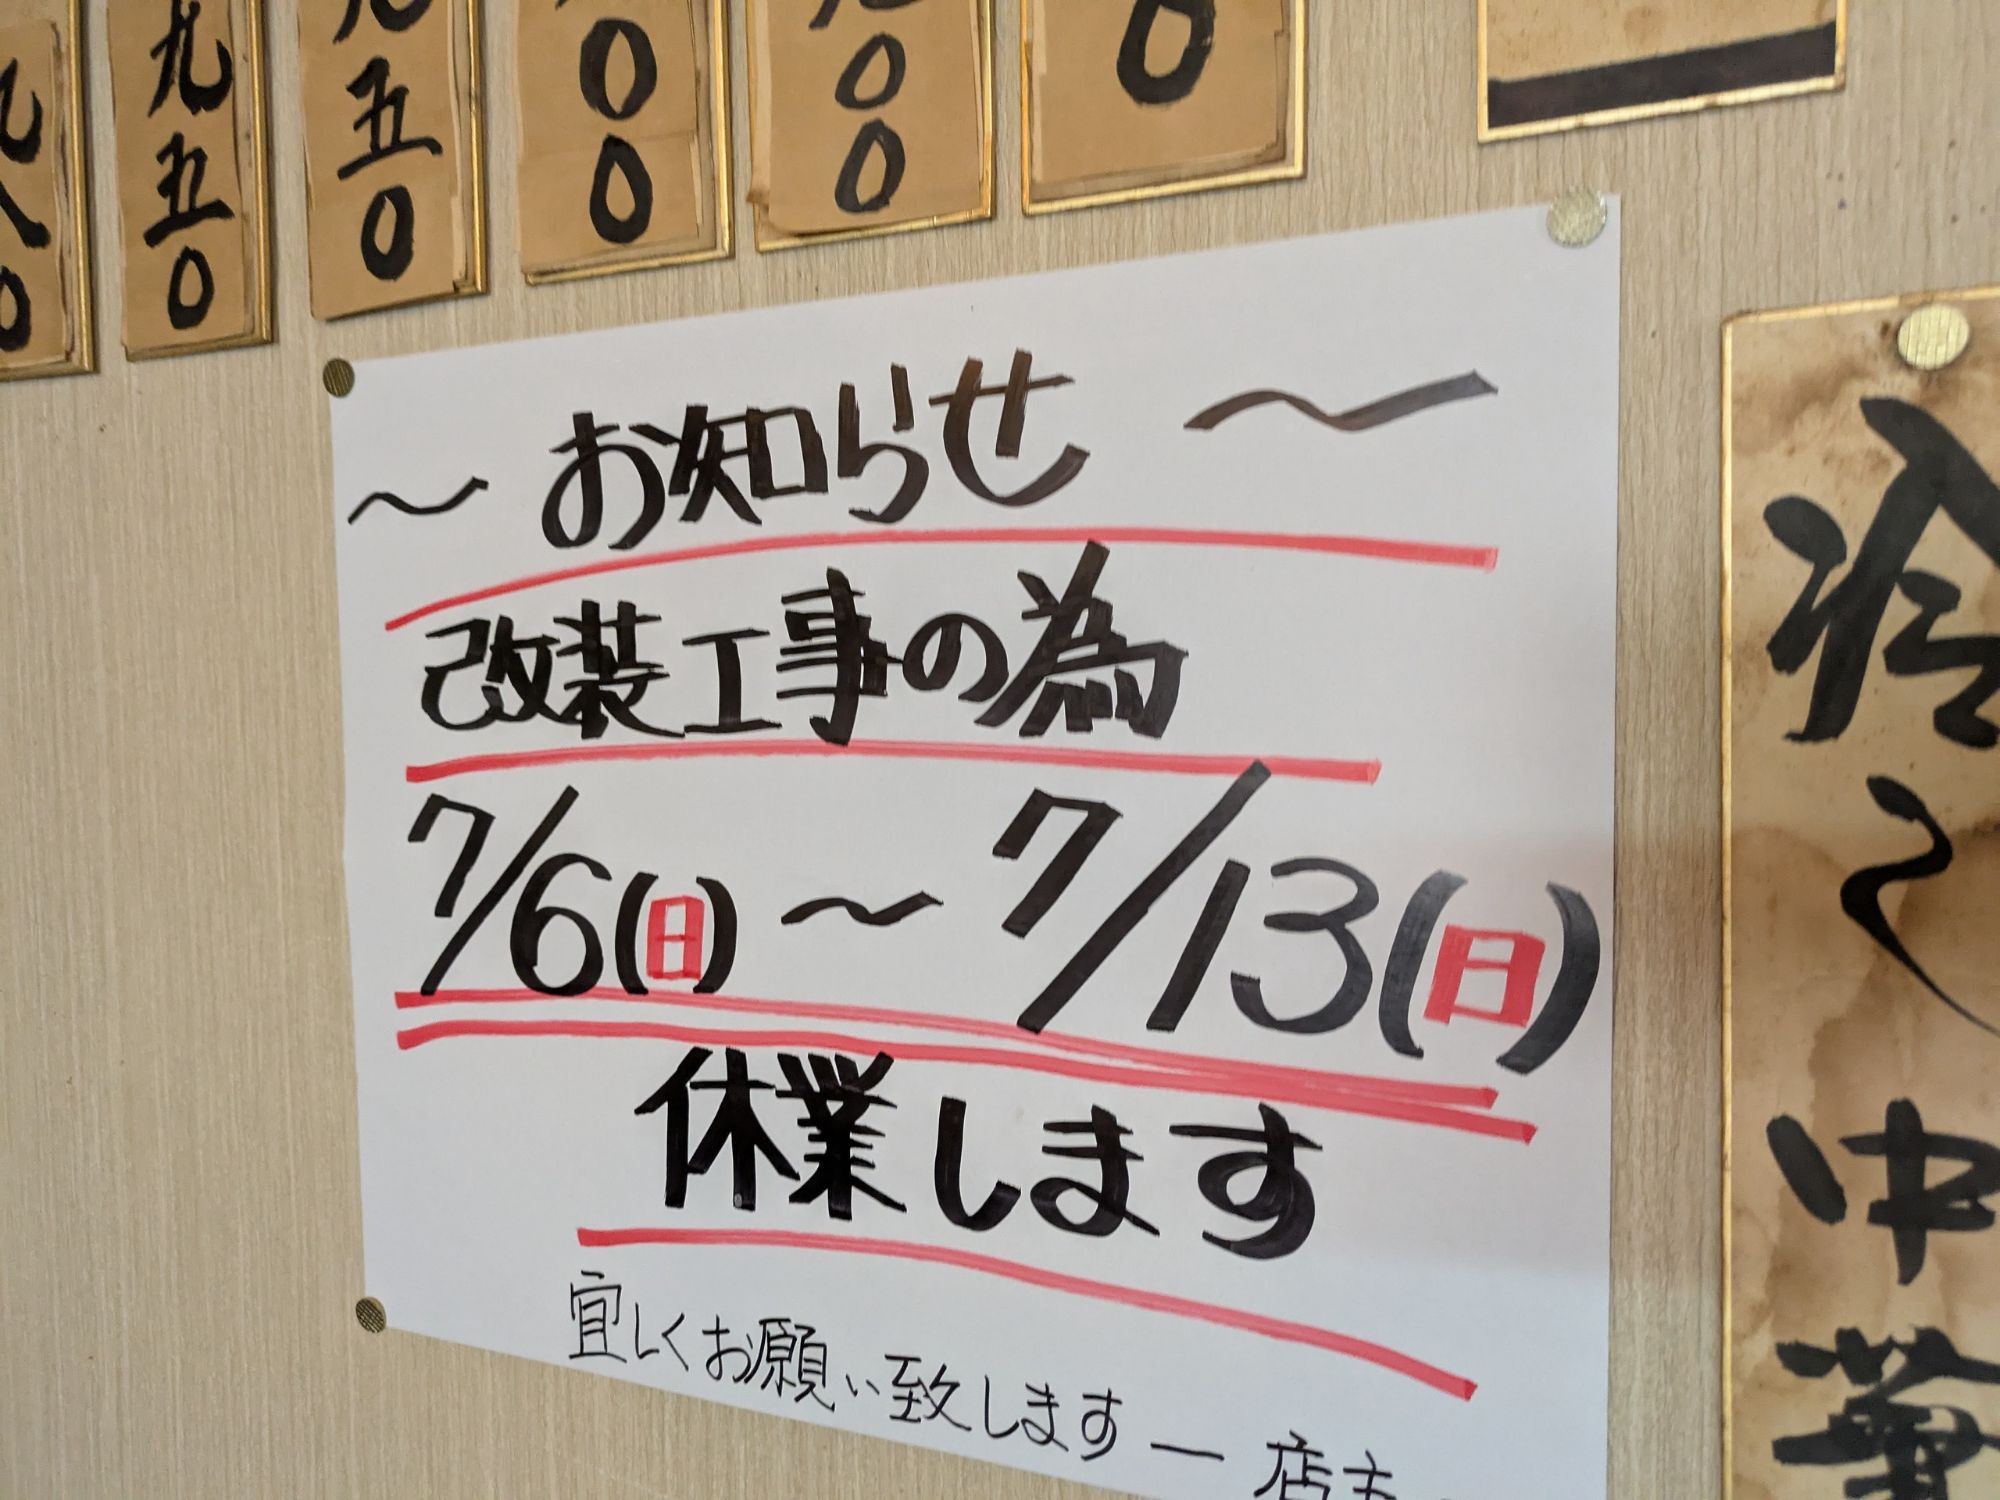 九八〇
九五〇
九五〇
〇〇
〇〇
〇
～ お知らせ ～
改装工事の為
7/6(日) ～ 7/13(日)
休業します
宜しくお願い致します ― 店主
冷し中華